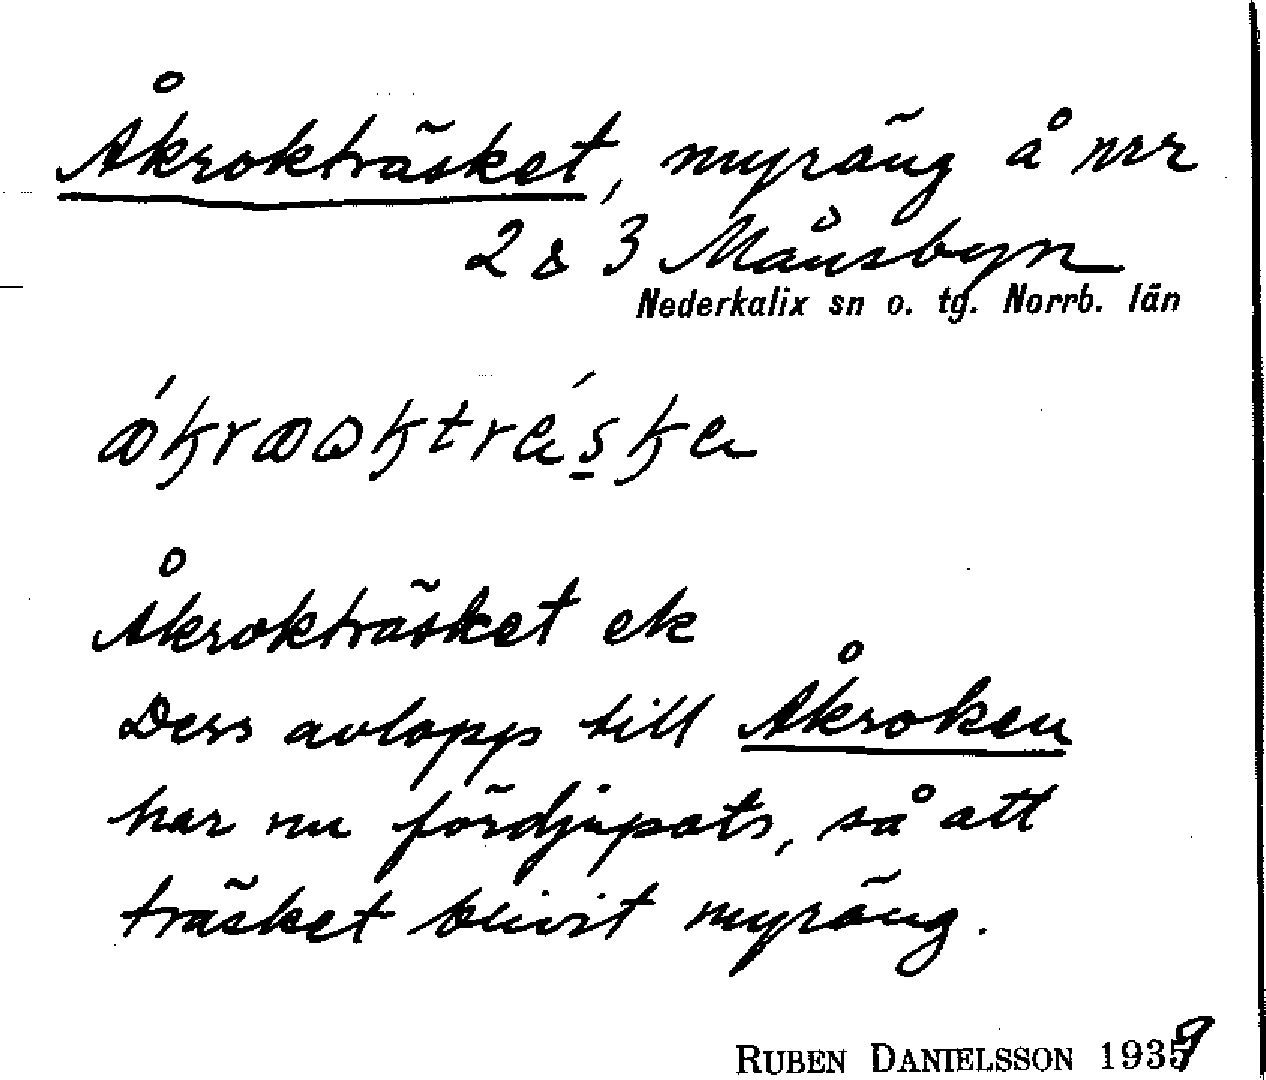 Åkrokträsket, myräng å nrr
2 & 3 Månsbyn
Nederkalix sn o. tg. Norrb. län
Åkrokträsket ek
Dess avlopp till Åkroken
har nu fördjupats, så att
träsket blivit myräng.
RUBEN DANIELSSON 1939